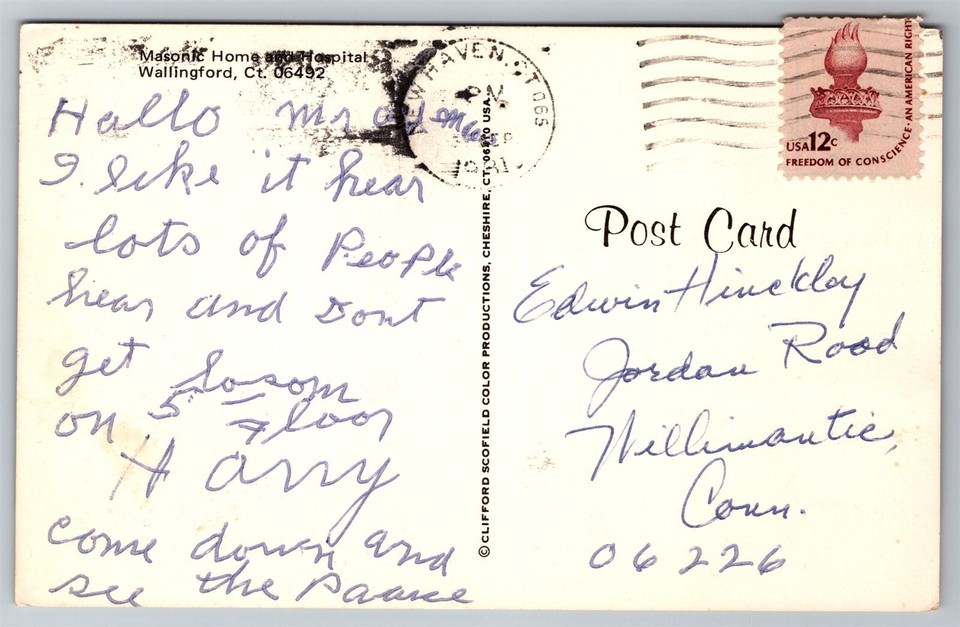 Masonic Home and Hospital
Wallingford, Ct. 06492
Hallo Mr
I like it hear
lots of People
hear and Dont
get losom
on 5 Floor
Harry
come down and
see the Paace
© CLIFFORD SCOFIELD COLOR PRODUCTIONS, CHESHIRE, CT. 06410 USA.
NEW HAVEN, CT 065
1981
USA 12c
FREEDOM OF CONSCIENCE·AN AMERICAN RIGHT
Post Card
Edwin Hinckley
Jordan Road
Willimantic,
Conn.
06226